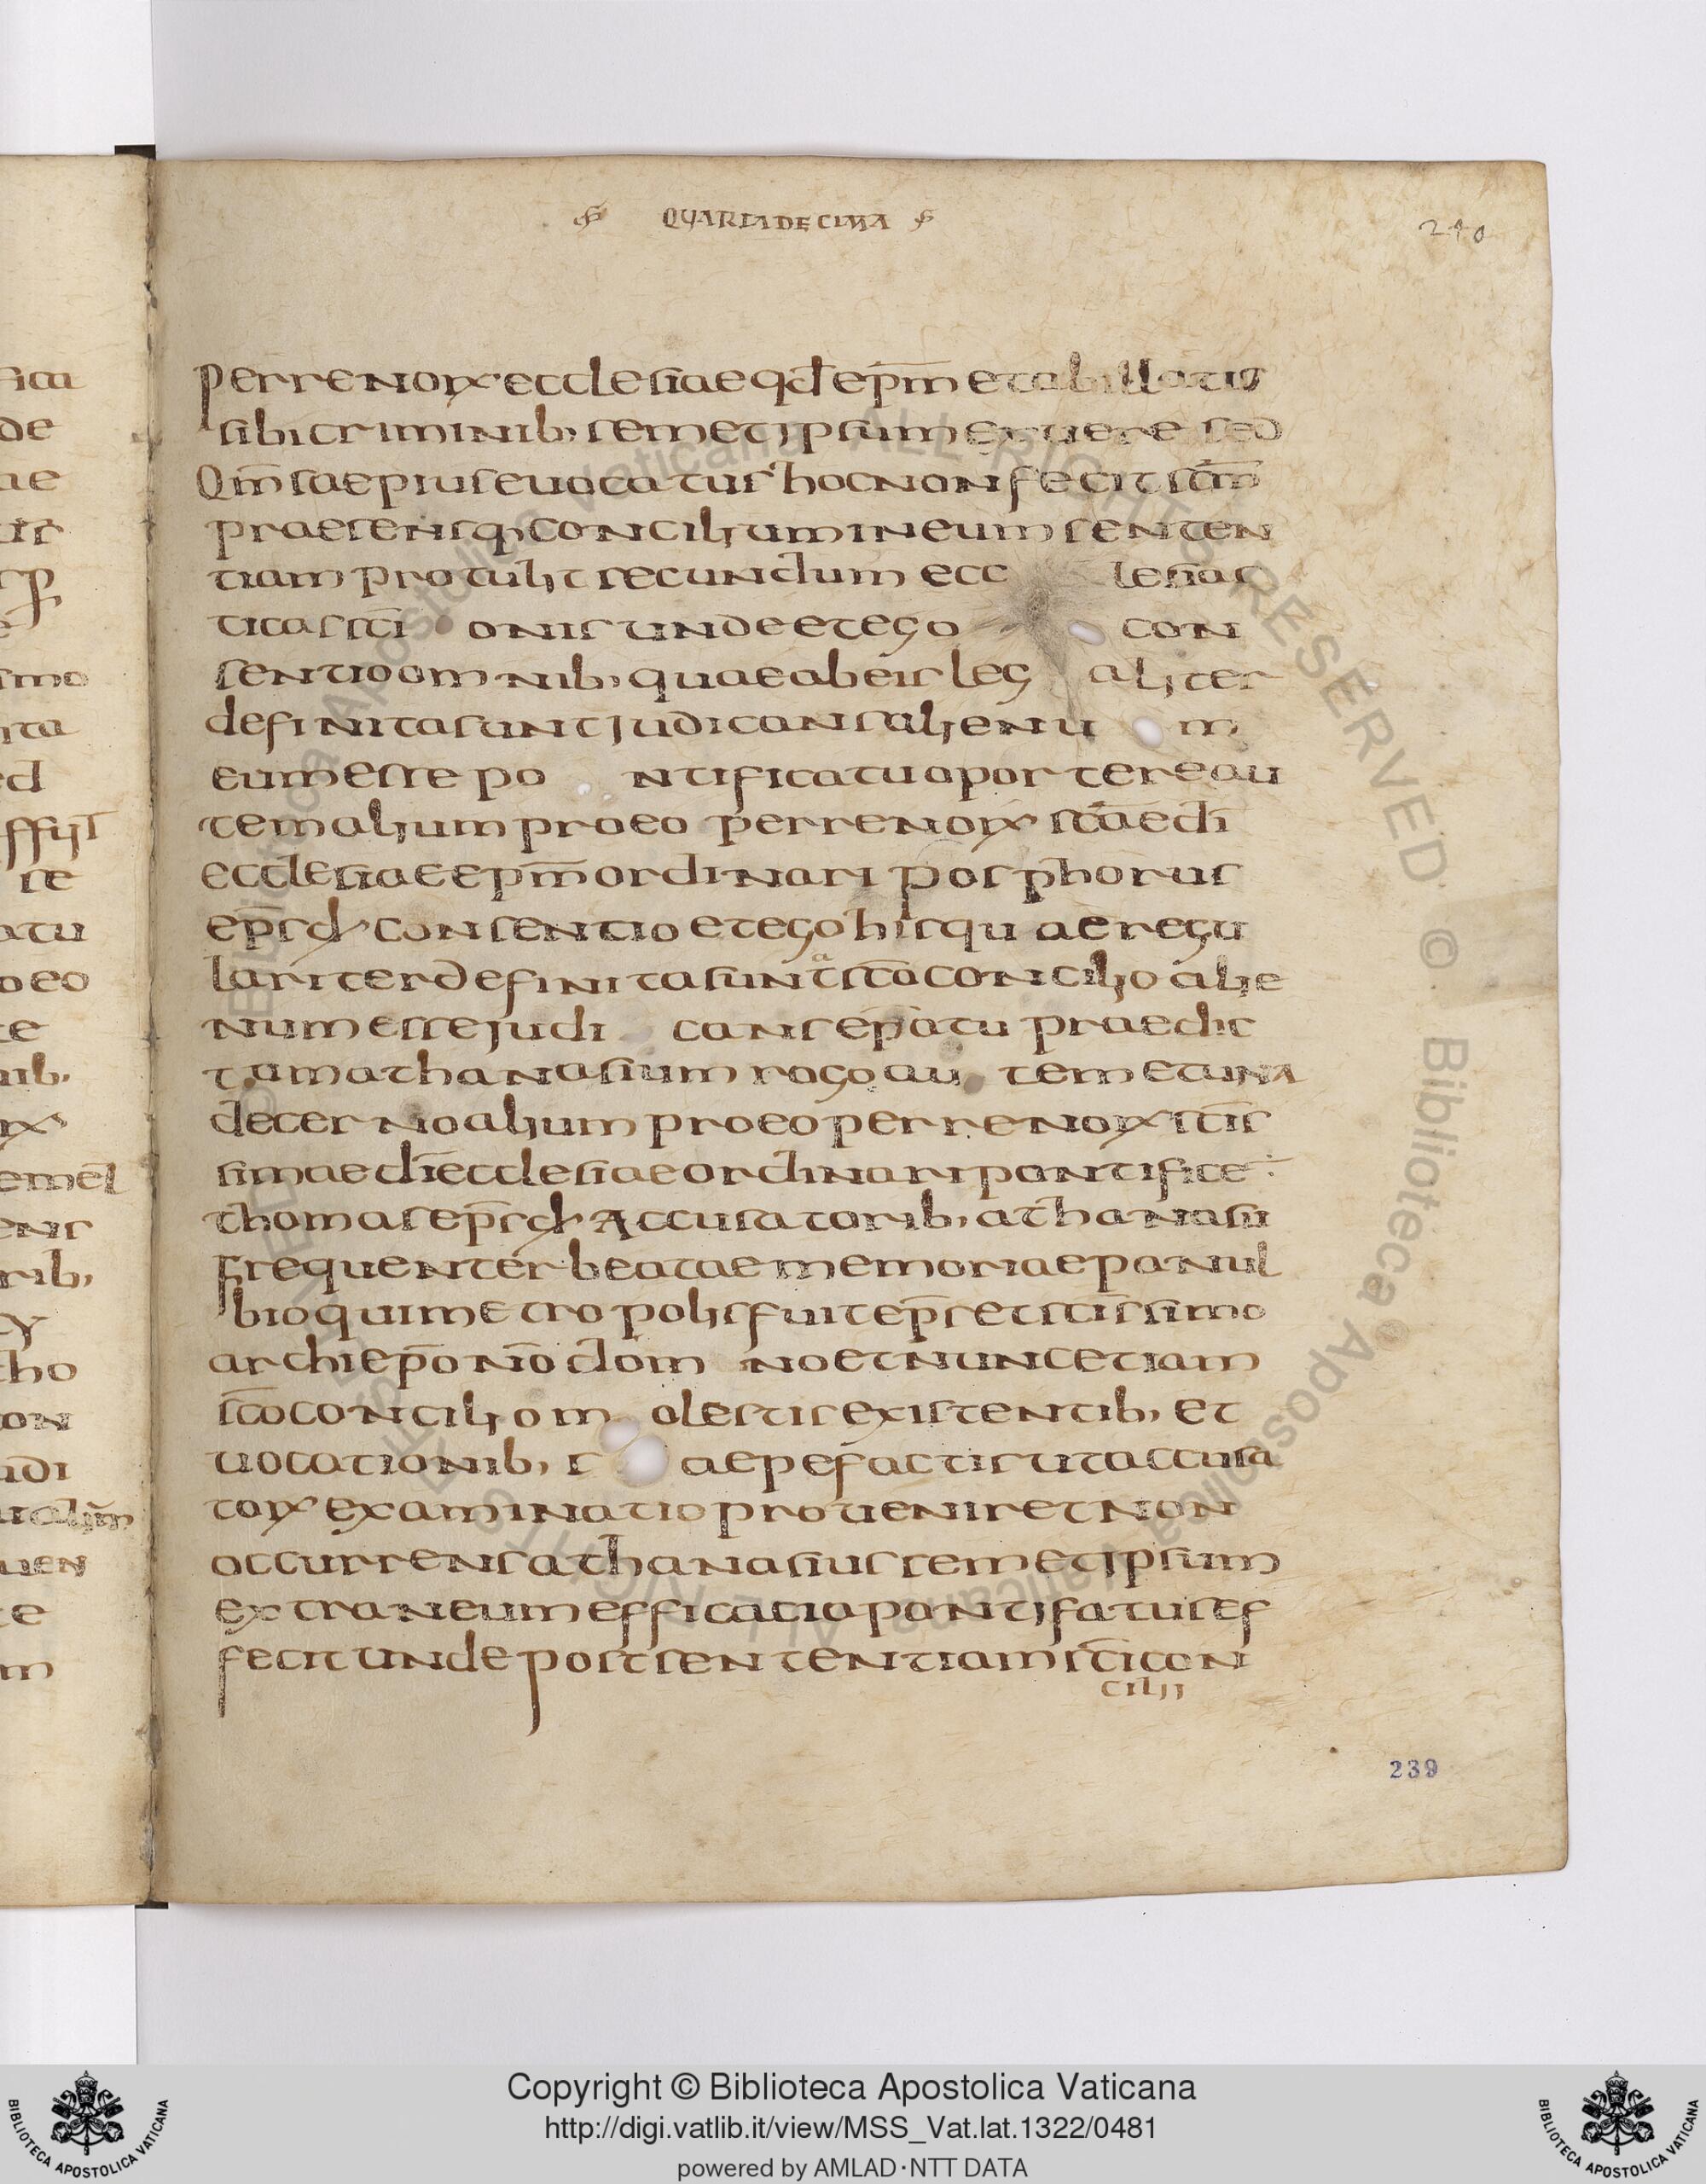 QUARTADECIMA
240
perrenorum ecclesiae qd ep̄m et ab illatis
sibi criminib, semetipsum exuere sed
Qm̄ saepius euocatus hoc non fecit sc̄m
praesensq, concilium in eum senten
tiam protulit secundum ecc lesias
ticas sc̄i onis unde et ego con
sentio omnib, quae ab eis leg aliter
definita sunt judicans alienu m
eum esse po ntificatu oportere au
tem alium pro eo perrenorum sc̄ae dī
ecclesiae ep̄m ordinari porphorus
ep̄s d̄ consentio et ego his quae regu
lariter definita sunt a sc̄o concilio alie
num esse judi cans ep̄atu praedic
tum athanasium rogo au tem et una
decerno alium pro eo perrenorum sc̄is
simae dī ecclesiae ordinari pontifice
thomas ep̄s d̄ Accusatorib, athanasii
frequenter beatae memoriae panul
bio qui metropolis fuit ep̄s et sc̄issimo
archiep̄o n̄o dom no et nunc etiam
sc̄o concilio m olestis existentib, et
uocationib, s aepe factis ut accusa
torum examinatio proueniret non
occurrens athanasius semetipsum
extraneum efficatio pontifatus ef
fecit unde post sententiam sc̄i con
cilii
239
fica
de
ae
smo
ed
se
atu
oeo
nib,
emel
ens
rib,
ho
on
udi
uen
m
Copyright © Biblioteca Apostolica Vaticana
http://digi.vatlib.it/view/MSS_Vat.lat.1322/0481
powered by AMLAD·NTT DATA
BIBLIOTECA APOSTOLICA VATICANA
BIBLIOTECA APOSTOLICA VATICANA